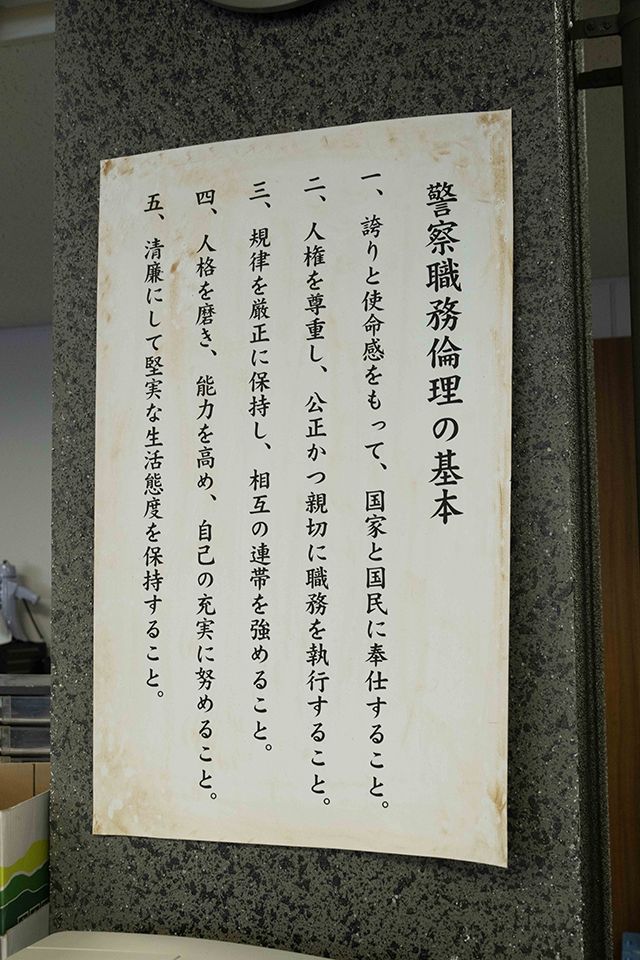 警察職務倫理の基本
一、誇りと使命感をもって、国家と国民に奉仕すること。
二、人権を尊重し、公正かつ親切に職務を執行すること。
三、規律を厳正に保持し、相互の連帯を強めること。
四、人格を磨き、能力を高め、自己の充実に努めること。
五、清廉にして堅実な生活態度を保持すること。